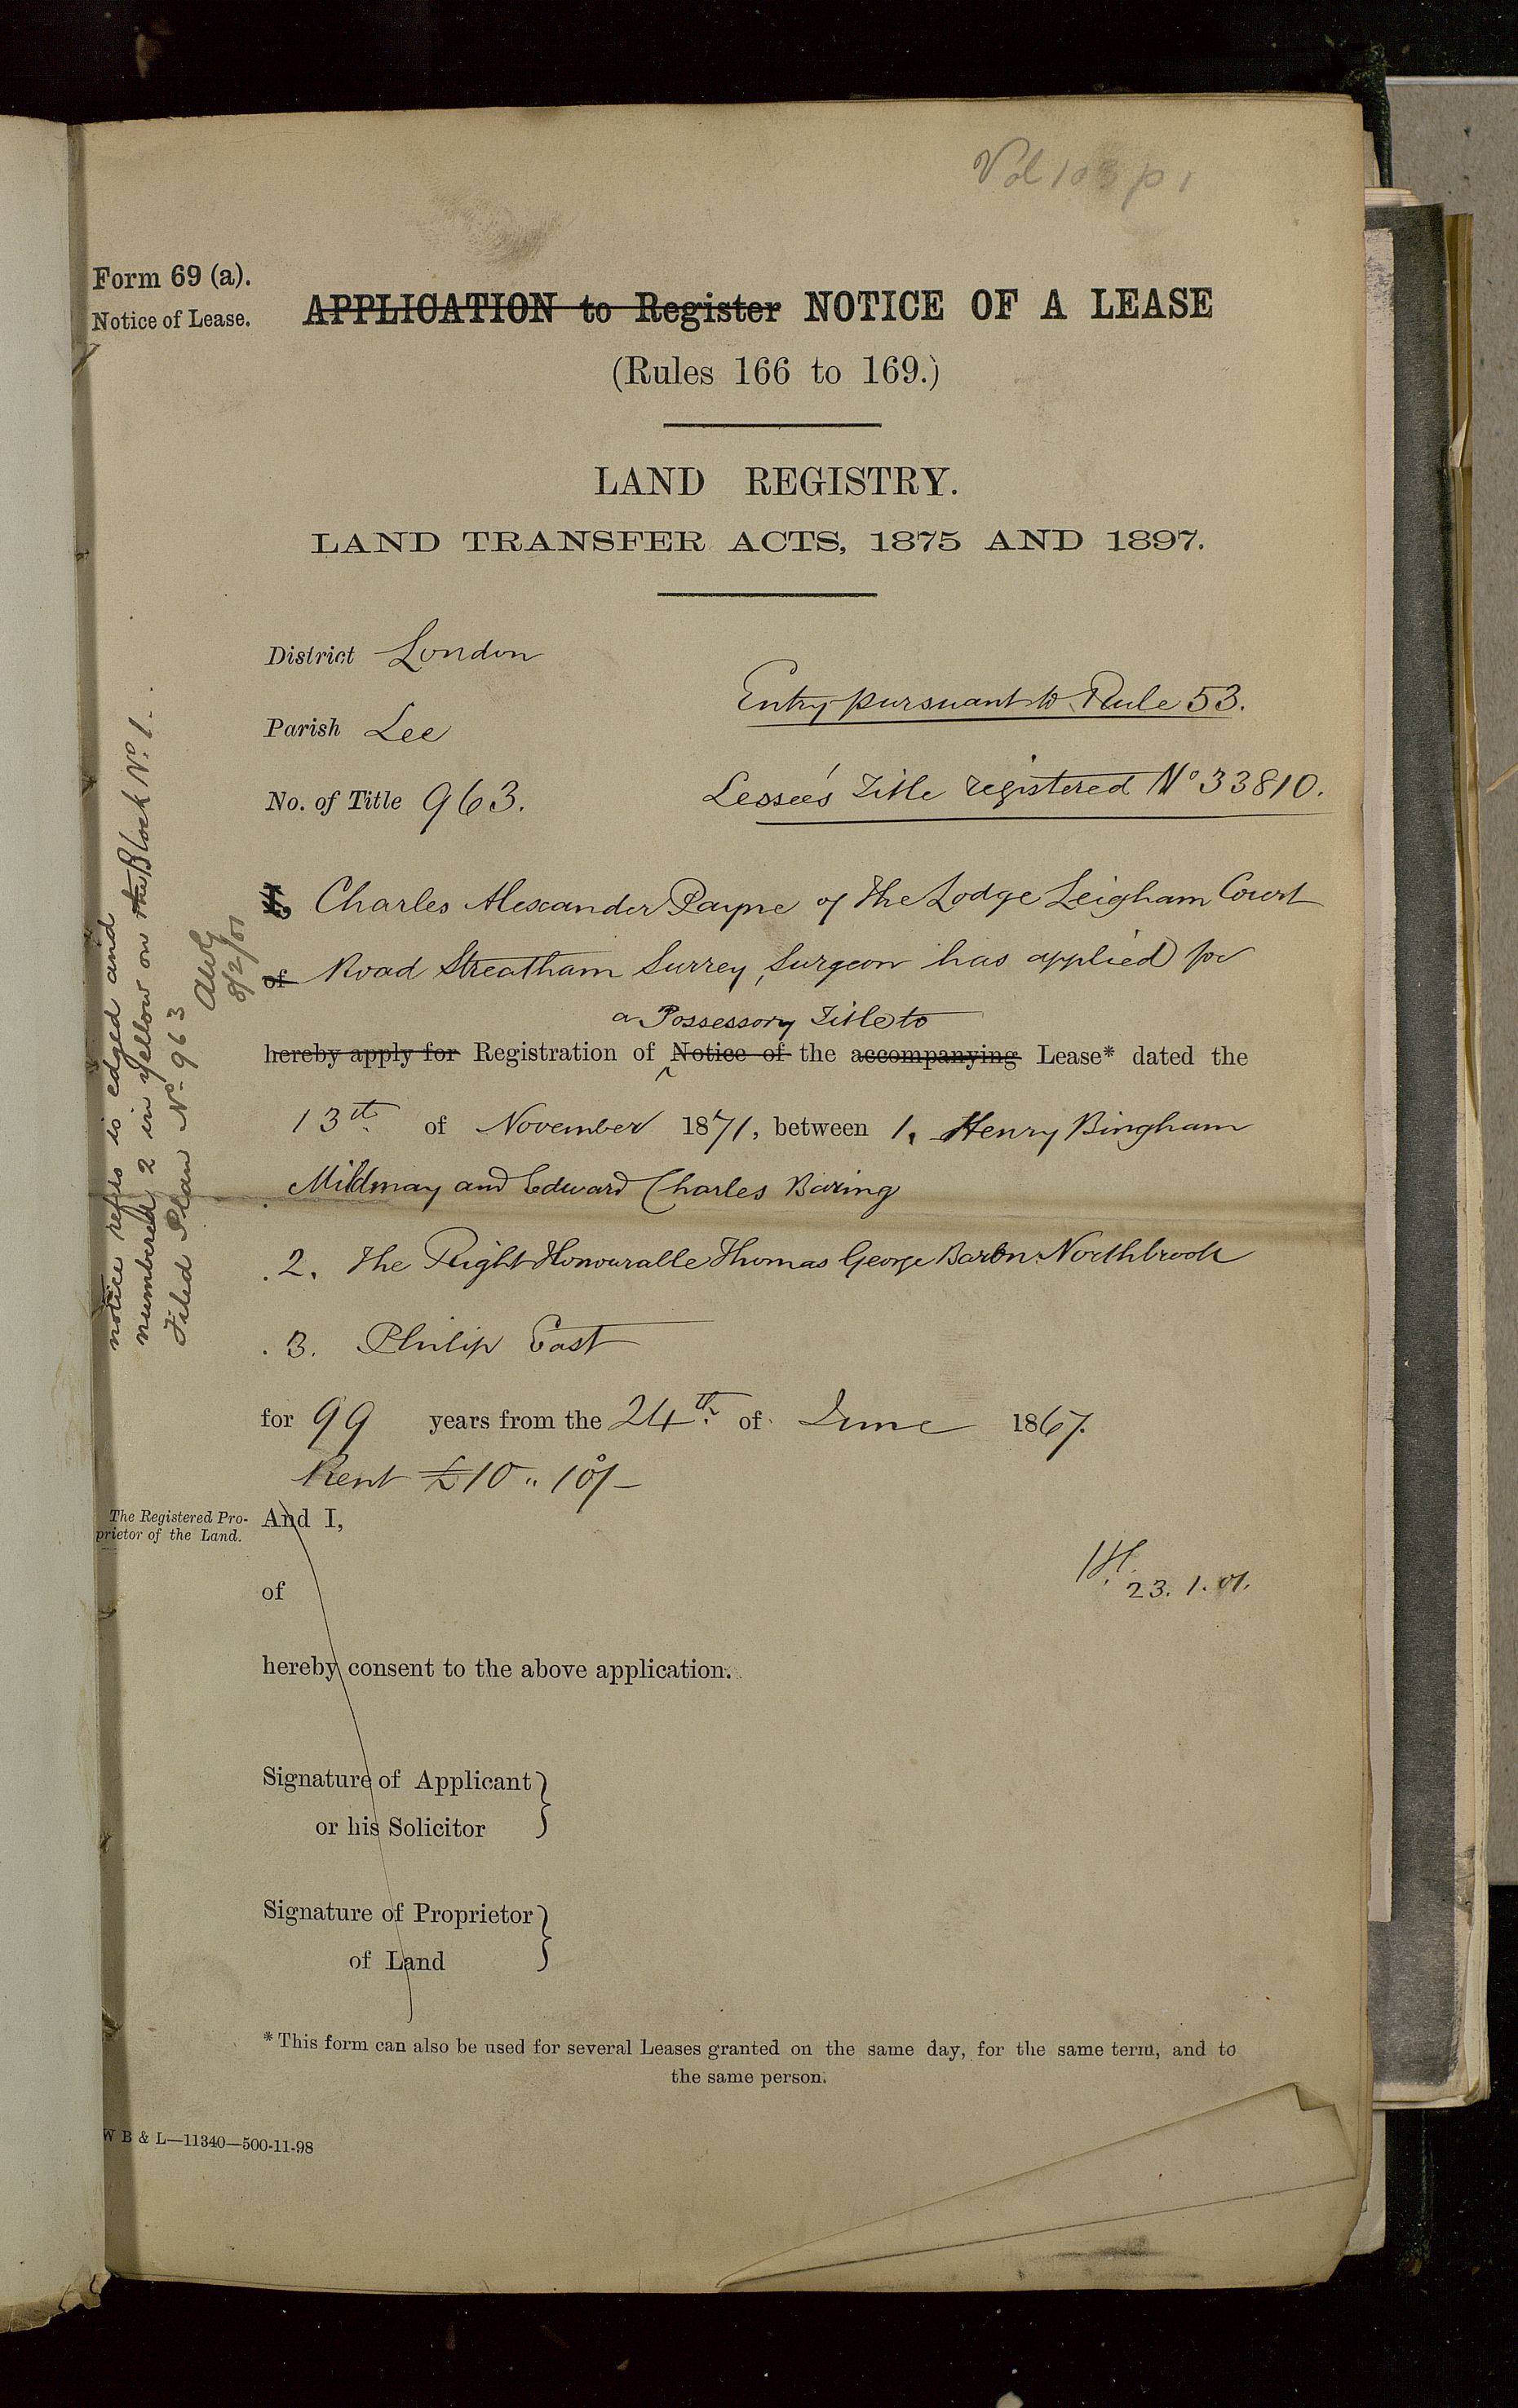 Vol 103 p 1
Form 69 (a).
Notice of Lease.
APPLICATION to Register NOTICE OF A LEASE
(Rules 166 to 169.)
LAND REGISTRY.
LAND TRANSFER ACTS, 1875 AND 1897.
District London
Entry pursuant to Rule 53.
Parish Lee
No. of Title 963.
Lessee's Title registered No 33810.
Charles Alexander Payne of The Lodge Leigham Court
of Road Streatham Surrey, Surgeon has applied for
a Possessory Title to
hereby apply for Registration of Notice of the accompanying Lease* dated the
13th of November 1871, between 1. Henry Bingham
Mildmay and Edward Charles Baring
2. The Right Honourable Thomas George Baron Northbrook
3. Philip East
for 99 years from the 24th of June 1867.
Rent £10 " 10/-
The Registered Pro-
prietor of the Land.
And I,
of
23. 1. 01.
hereby consent to the above application.
Signature of Applicant
or his Solicitor
Signature of Proprietor
of Land
*This form can also be used for several Leases granted on the same day, for the same term, and to
the same person.
W B & L—11340—500-11-98
notice refers is edged and
numbered 2 in yellow on the Block No. 1.
Filed Plan No. 963
8/2/01